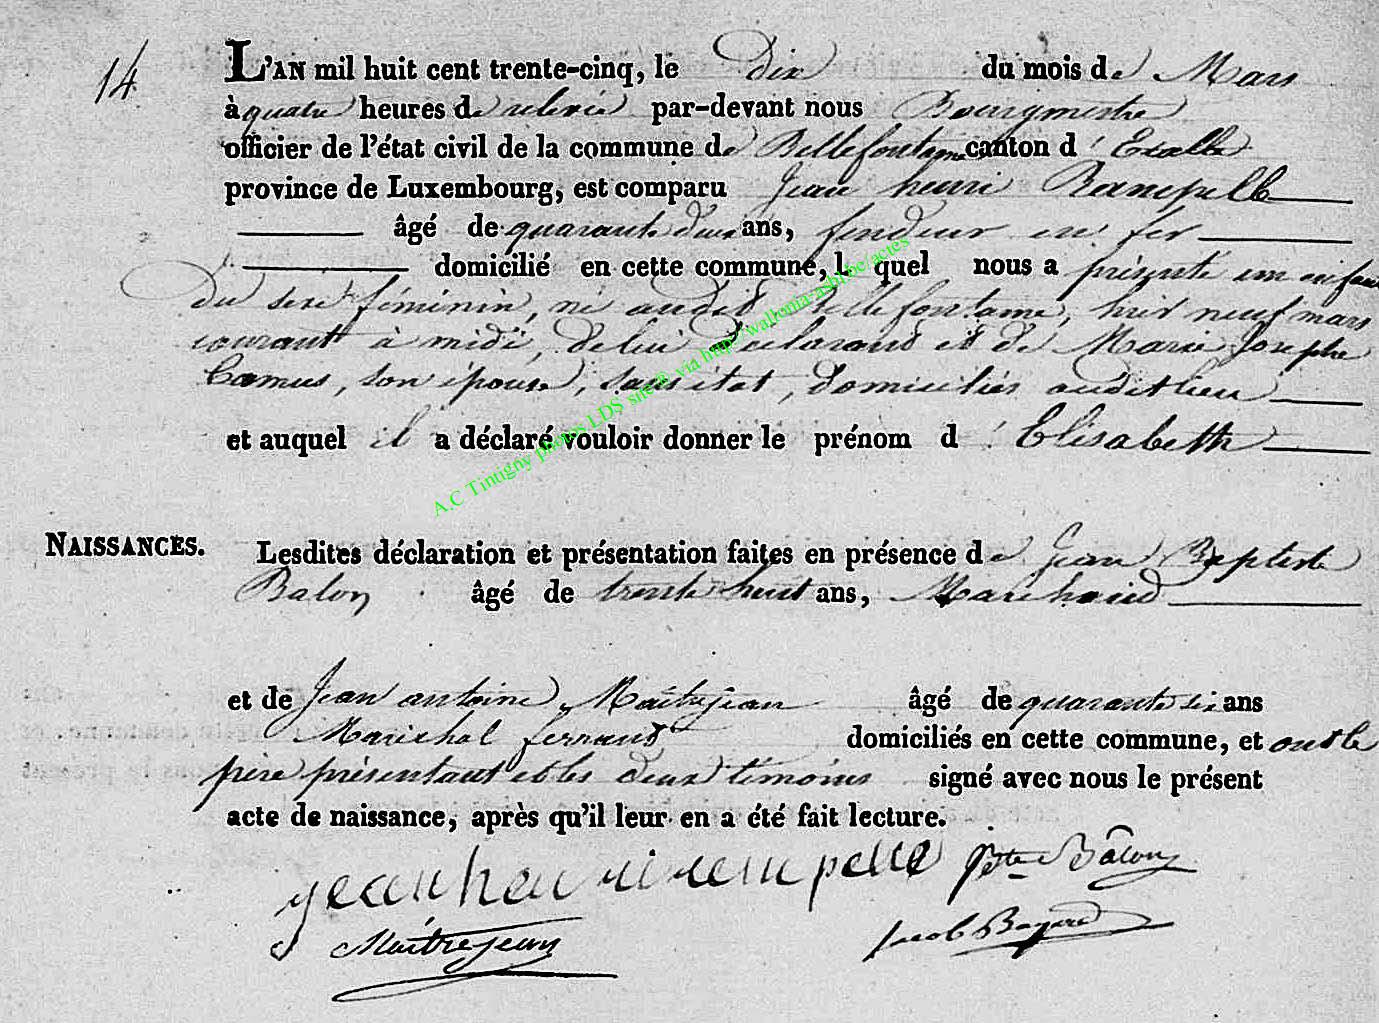 14.
L'AN mil huit cent trente-cinq, le Dix du mois de Mars
à quatre heures de relevée par-devant nous Bourgmestre
officier de l'état civil de la commune de Bellefontaine canton d'Etalle
province de Luxembourg, est comparu Jean henri
âgé de quarante deux ans, fendeur en fer
domicilié en cette commune, l quel nous a présenté un enfant
du sexe féminin, né audit Bellefontaine, hier neuf mars
courant à midi, de lui déclarant et de Marie Josephe
Camus, son épouse, sans état, domiciliés audit lieu
et auquel il a déclaré vouloir donner le prénom d'Elisabeth
A.C Tintigny photos LDS site® via http://wallonia-asbl.be/actes
NAISSANCES.
Lesdites déclaration et présentation faites en présence de Jean Baptiste
Balon âgé de trente huit ans, Marchand
et de Jean antoine Maîtrejean âgé de quarante six ans
Maréchal ferrand domiciliés en cette commune, et ont le
père présentant et les deux témoins signé avec nous le présent
acte de naissance, après qu'il leur en a été fait lecture.
jean henri rempelle Bte Bâlon
Maîtrejean Jacob